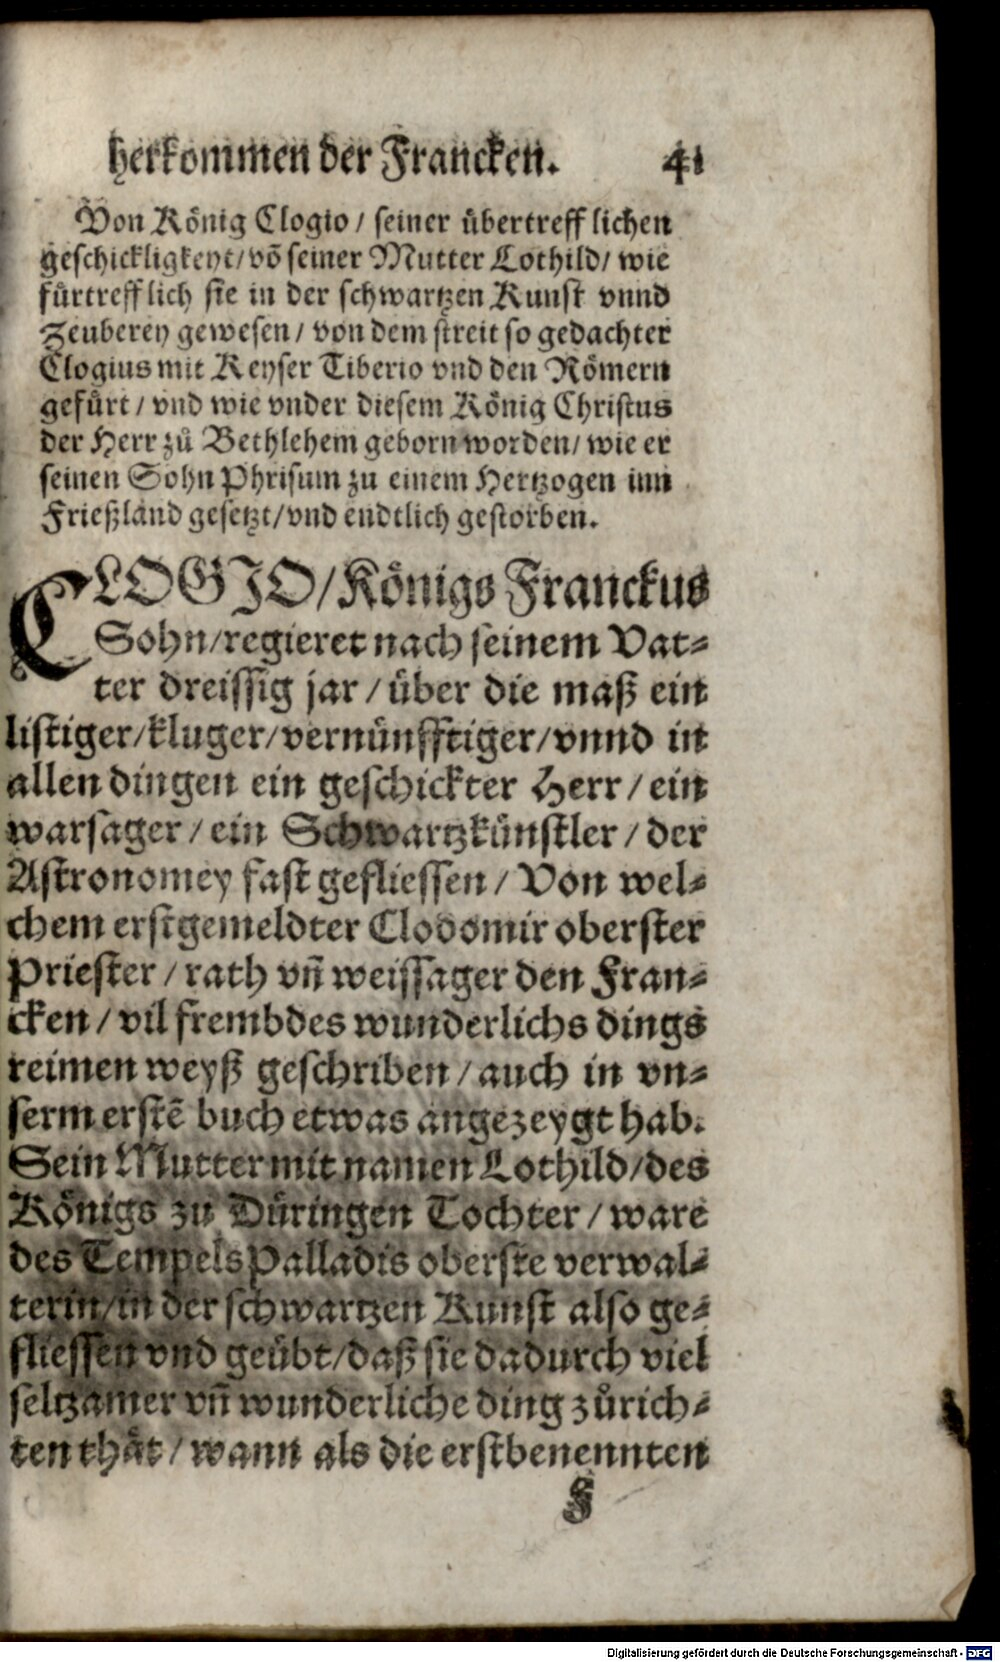 herkommen der Francken. 41
Von König Clogio / seiner übertrefflichen
geschickligkeyt/ võ seiner Mutter Lothild/ wie
fürtrefflich sie in der schwartzen Kunst vnnd
Zeuberey gewesen / von dem streit so gedachter
Clogius mit Keyser Tiberio vnd den Römern
gefürt / vnd wie vnder diesem König Christus
der Herr zů Bethlehem geborn worden/ wie er
seinen Sohn Phrisum zu einem Hertzogen inn
Frießland gesetzt/ vnd endtlich gestorben.
CLOGIO/ Königs Franckus
Sohn/ regieret nach seinem Vat⸗
ter dreissig jar / über die maß ein
listiger/ kluger/ vernünfftiger/ vnnd in
allen dingen ein geschickter Herr / ein
warsager / ein Schwartzkünstler / der
Astronomey fast gefliessen / Von wel⸗
chem erstgemeldter Clodomir oberster
Priester / rath vñ weissager den Fran⸗
cken / vil frembdes wunderlichs dings
reimen weyß geschriben / auch in vn⸗
serm erstẽ buch etwas angezeygt hab.
Sein Mutter mit namen Lothild/ des
Königs zu Düringen Tochter / ware
des Tempels Palladis oberste verwal⸗
terin/ in der schwartzen Kunst also ge⸗
fliessen vnd geübt/ daß sie dadurch viel
seltzamer vñ wunderliche ding zůrich⸗
ten thät / wann als die erstbenennten
F
Digitalisierung gefördert durch die Deutsche Forschungsgemeinschaft - DFG